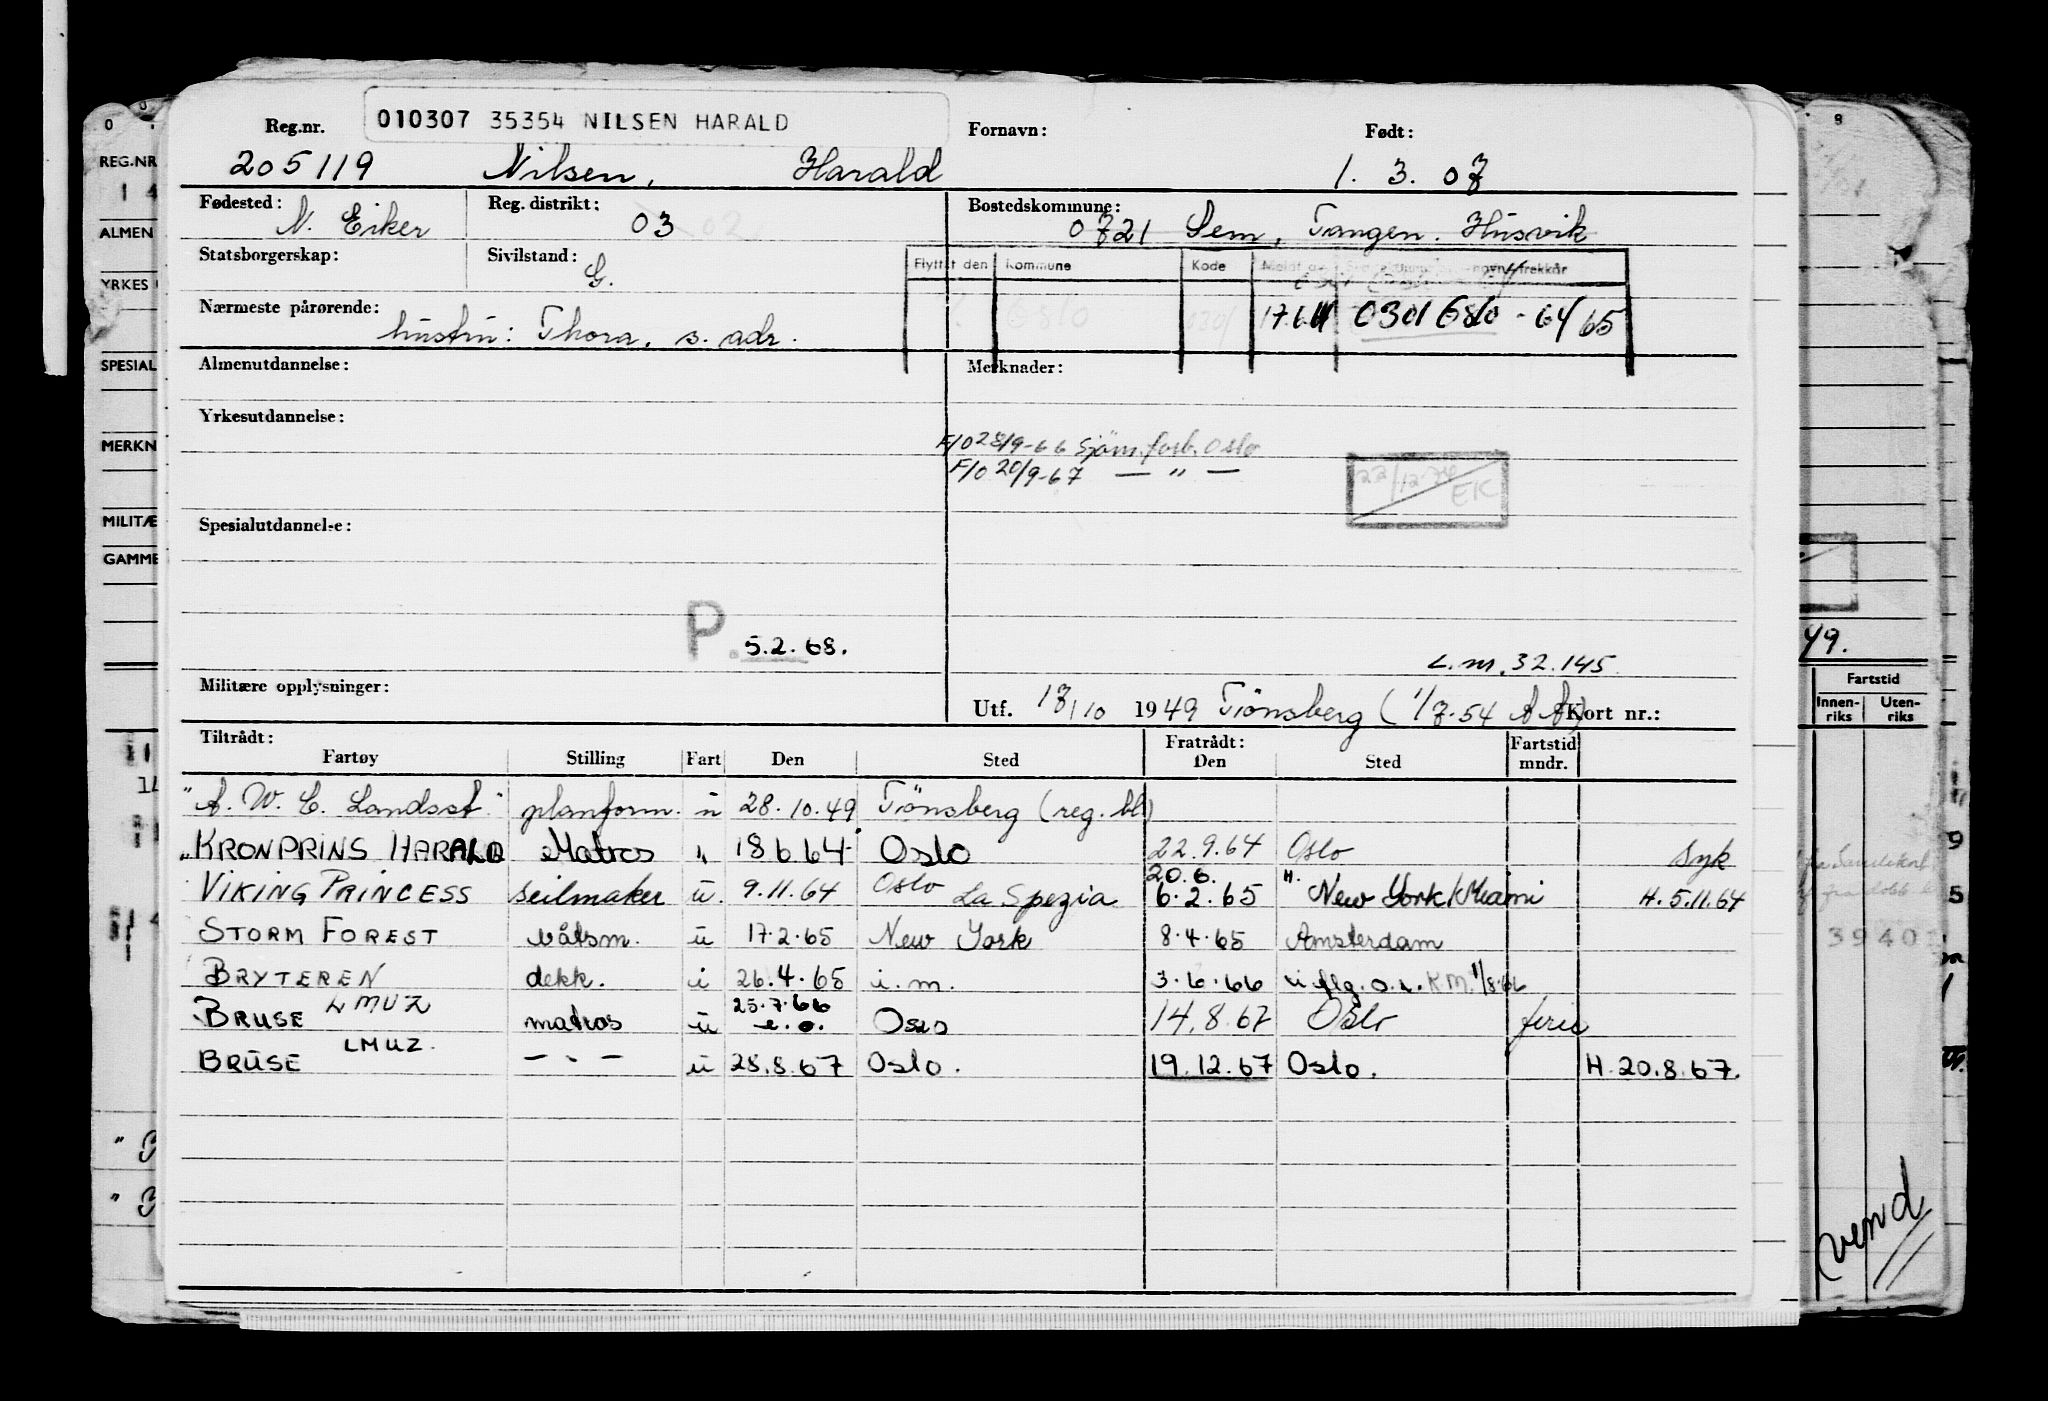 Reg.nr. 010307 35354 NILSEN HARALD Fornavn: Født:
205119 Nilsen, Harald 1. 3. 07
Fødested: N. Eiker Reg. distrikt: 03 02 Bostedskommune: 0721 Sem, Tangen. Husvik
Statsborgerskap: Sivilstand: G.
Flyttet den Kommune Kode Meldt
Nærmeste pårørende: hustru: Thora, s. adr.
Oslo 0301 17.6.64 0301 Oslo - 64/65
Almenutdannelse: Merknader:
Yrkesutdannelse:
F/O 28/9-66 Sjøm.forb. Oslo
F/O 20/9-67 — " —
22/12-76 EK
Spesialutdannelse:
P. 5.2.68.
L.nr. 32.145
Militære opplysninger: Utf. 17/10 1949 Tönsberg (1/7-54 A A) Kort nr.:
Tiltrådt: Fratrådt: Fartstid
Fartøy Stilling Fart Den Sted Den Sted mndr.
"A. W. C. Landsst." planform. u 28.10.49 Tönsberg (reg. bl)
"KRONPRINS HARALD Matros " 18 6 64 Oslo 22.9.64 Oslo syk
20.6.
VIKING PRINCESS seilmaker u. 9.11.64 Oslo La Spezia 6.2.65 H. New York/Miami H. 5.11.64
STORM FOREST båtsm. u 17.2.65 New York 8.4.65 Amsterdam
BRYTEREN dekk. i 26.4.65 i.m. 3.6.66 i flg. o.v. KM. 1/8-66
BRUSE LMUZ matros u 25.7.66 e.o. Oslo 14.8.67 Oslo ferie
BRUSE LMUZ. — " — u 28.8.67 Oslo. 19.12.67 Oslo. H. 20.8.67.
REG.NR
ALMEN
YRKES
SPESIAL
MERKN
MILITÆ
GAMME
49.
Fartstid
Innen-riks Uten-riks
3940
vend